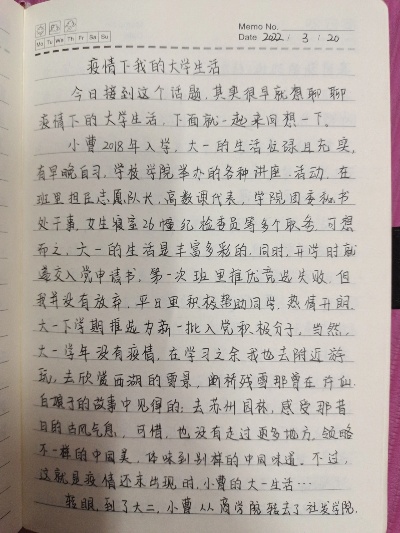 Memo No.
Mo Tu We Th Fr Sa Su
Date 2022 . 3 . 20
疫情下我的大学生活
今日接到这个话题,其实很早就想聊聊
疫情下的大学生活,下面就一起来回想一下。
小曹2018年入学,大一的生活忙碌且充实,
有早晚自习,学校学院举办的各种讲座、活动,在
班里担任志愿队长、高数课代表,学院团委秘书
处干事,女生寝室26幢纪检查员等多个职务,可想
而之,大一的生活是丰富多彩的,同时,开学时就
递交入党申请书,第一次班里推优竞选失败,但
我并没有放弃,平日里积极帮助同学,热情开朗,
大一下学期推选为新一批入党积极分子,当然,
大一学年没有疫情,在学习之余我也去附近游
玩,去欣赏西湖的雪景,断桥残雪那曾在许仙
白娘子的故事中见得的;去苏州园林,感受那昔
日的古风气息,可惜,也没有走过更多地方,领略
不一样的中国美,体味到别样的中国味道。不过,
这就是疫情还未出现时,小曹的大一生活…
转眼,到了大二,小曹从商学院转去了社发学院,